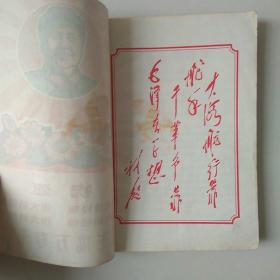 大海航行靠
舵手
干革命靠
毛泽东思想
林彪